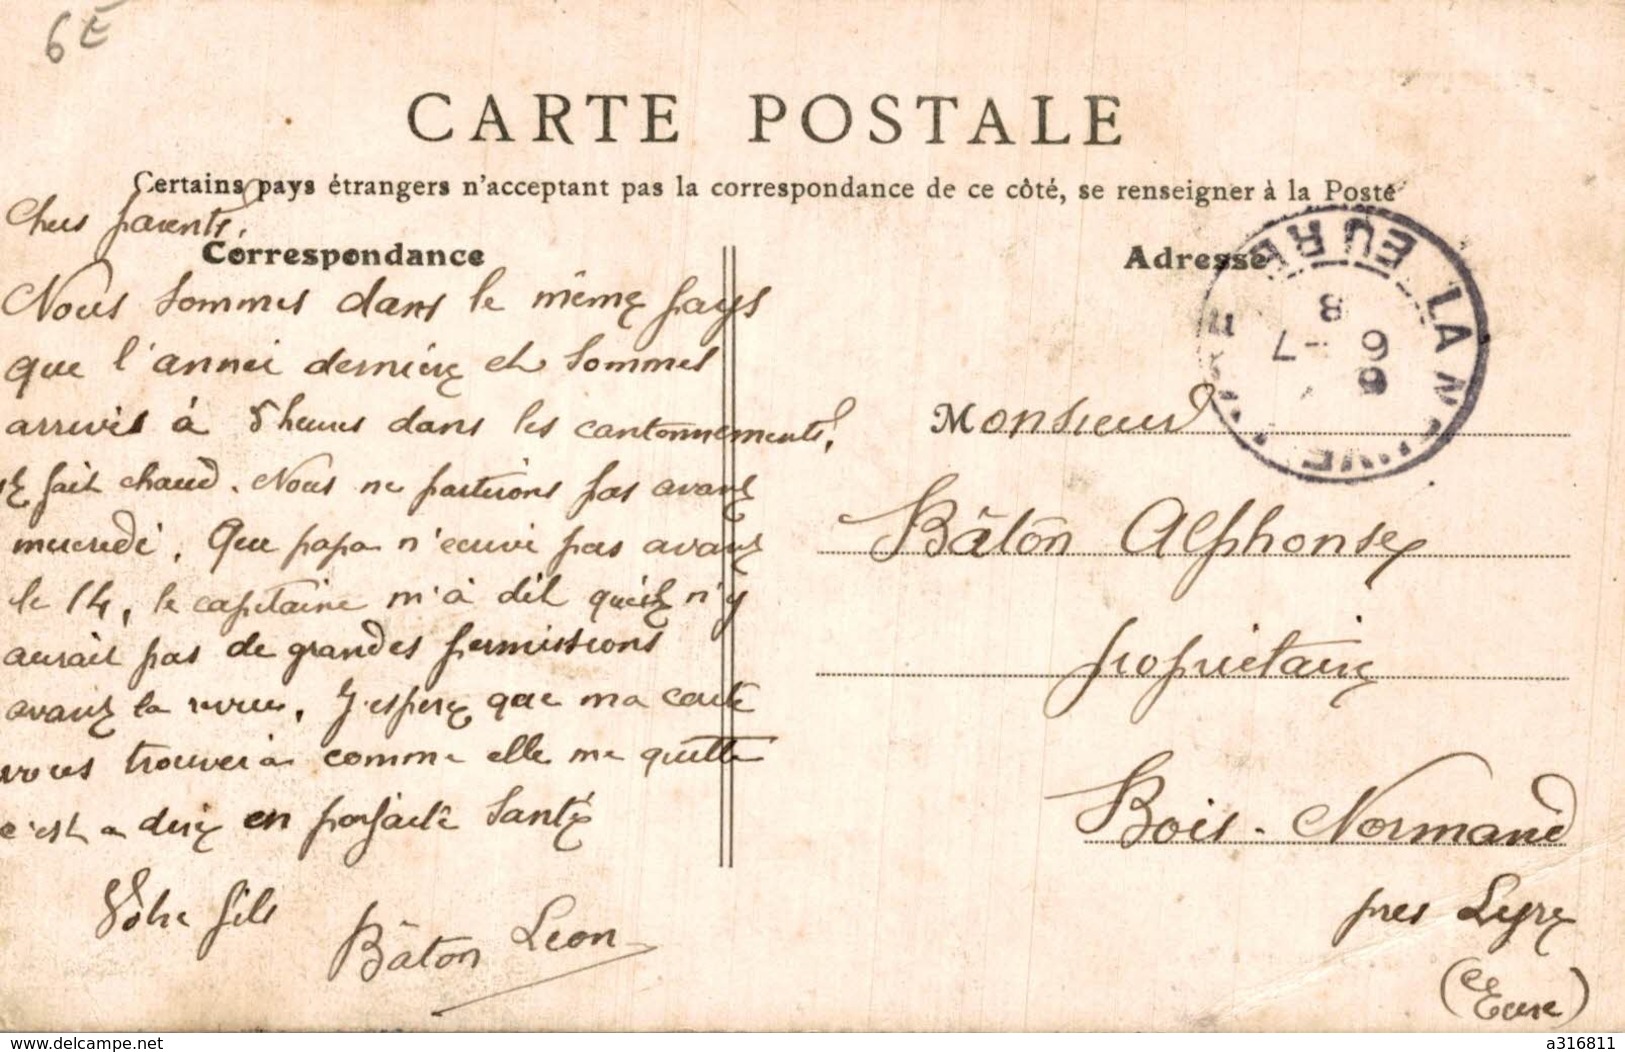 6 E
CARTE POSTALE
Certains pays étrangers n'acceptant pas la correspondance de ce côté, se renseigner à la Poste
Chers parents,
Correspondance
Nous sommes dans le même pays
que l'année dernière et sommes
arrivés à 5 heures dans les cantonnements,
il fait chaud. Nous ne partirons pas avant
mercredi. Que papa n'écrive pas avant
le 14, le capitaine m'a dit qu'il n'y
aurait pas de grandes permissions
avant la revue. J'espère que ma carte
vous trouvera comme elle me quitte
c'est a dire en parfaite santé
Vôtre fils
Bâton Léon
Adresse
LA NEUVE
EURE
8
7
09
Monsieur
Bâton Alphonse
propriétaire
Bois-Normand
près Lyre
(Eure)
delcampe.net
a316811